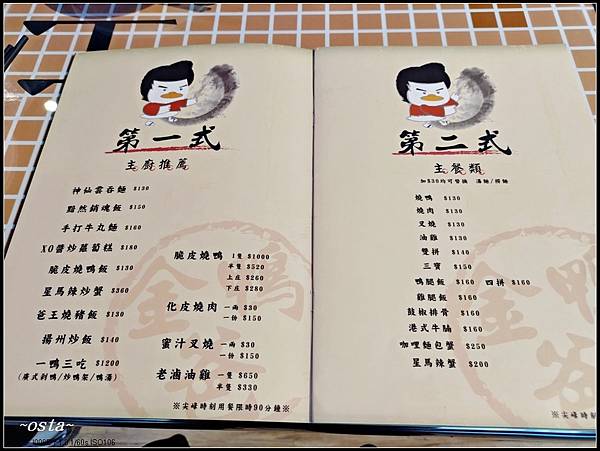 第一式
主廚推薦
神仙雲吞麵 $130
黯然銷魂飯 $150
手打牛丸麵 $160
XO醬炒蘿蔔糕 $180
脆皮燒鴨飯 $130
星馬辣炒蟹 $360
爸王燒豬飯 $130
揚州炒飯 $140
一鴨三吃 $1200
(廣式刴鴨/炒鴨架/鴨湯)
脆皮燒鴨 1隻 $1000
半隻 $520
上庄 $260
下庄 $280
化皮燒肉 一兩 $30
一份 $150
蜜汁叉燒 一兩 $30
一份 $150
老滷油雞 一隻 $650
半隻 $330
※尖峰時刻用餐限時90分鐘※
第二式
主餐類
加$30均可替換 湯麵/撈麵
燒鴨 $130
燒肉 $130
叉燒 $130
油雞 $130
雙拼 $140
三寶 $150
鴨腿飯 $160 四拼 $160
雞腿飯 $160
鼓椒排骨 $160
港式牛腩 $160
咖哩麵包蟹 $250
星馬辣蟹 $200
※尖峰時刻用餐限時90分鐘※
~osta~
1/60s ISO106